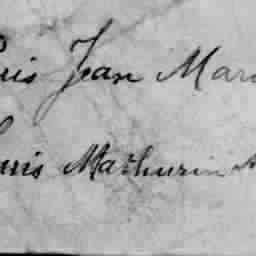 uis Jean Mar
uis Mathurin